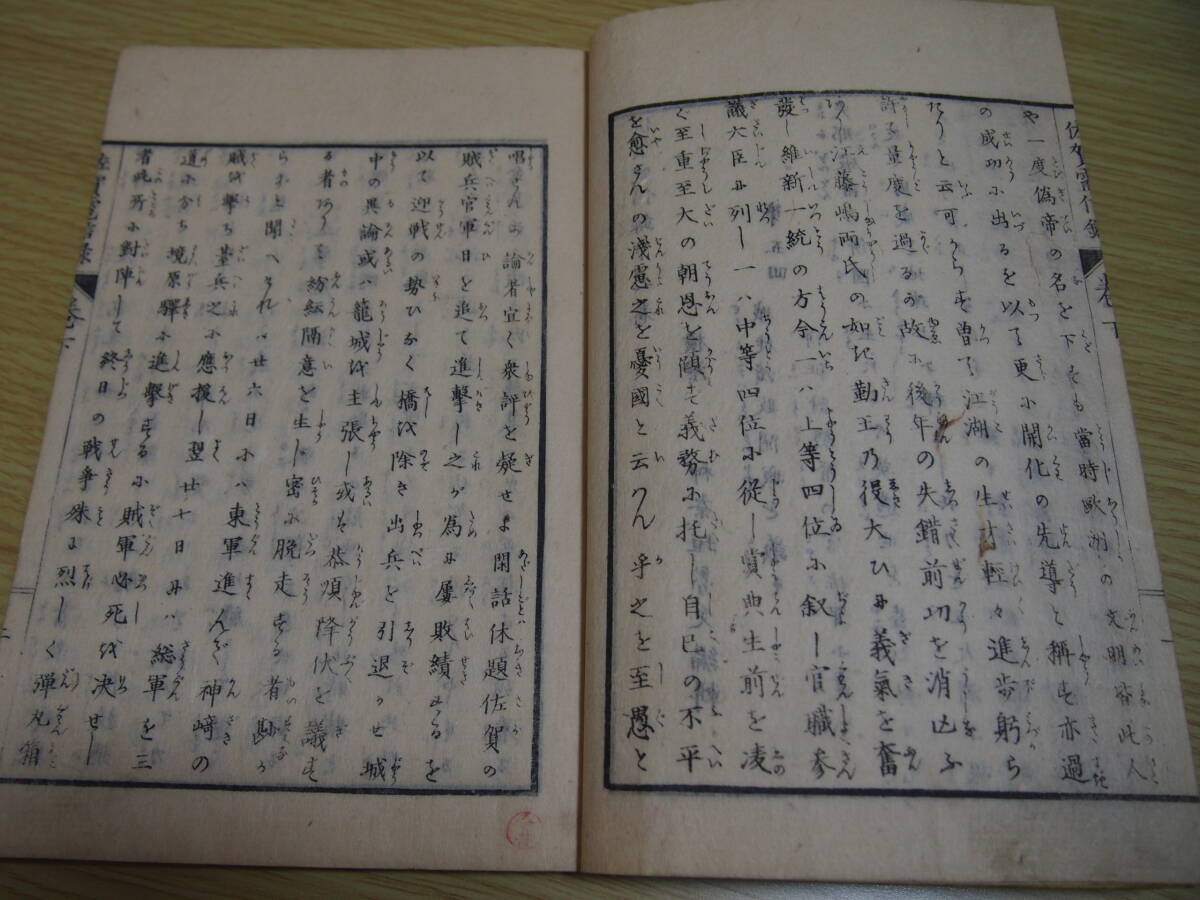 佐賀電信録 巻下
や一度偽帝の名を下そも當時歐洲の文明此人
の成功に出るを以て更に開化の先導と稱す亦過
たりと云可からず曽て江湖の生才輕々進歩躬ら
許す量度を過るが故に後年の失錯前功を消凶ふ
江藤嶋両氏の如き勤王乃役大ひに義氣を奮
發し維新一統の方今一ハ上等四位に叙し官職参
議大臣に列し一ハ中等四位に従し賞典生前を凌
ぐ至重至大の朝恩を顧ず義務に托し自己の不平
を愈さんの浅慮之を憂國と云りん乎之を至愚と
唱さんか論者宜く衆評を凝せよ閑話休題佐賀の
賊兵官軍日を追て進撃し之が為に屡敗績するを
以て迎戦の勢ひなく橋を除き出兵を引退かせ城
中の異論或ハ籠城を主張し或ハ恭順降伏を議す
る者ありて紛紜隔意を生じ密に脱走する者勘か
らずと聞へそれハ廿六日にハ東軍進んで神﨑の
賊を撃ち臺兵之に應援し翌廿七日にハ総軍を三
道に分ち境原驛に進撃するに賊軍必死を決せし
者此所に對陣して終日の戦争殊に烈しく弾丸箱